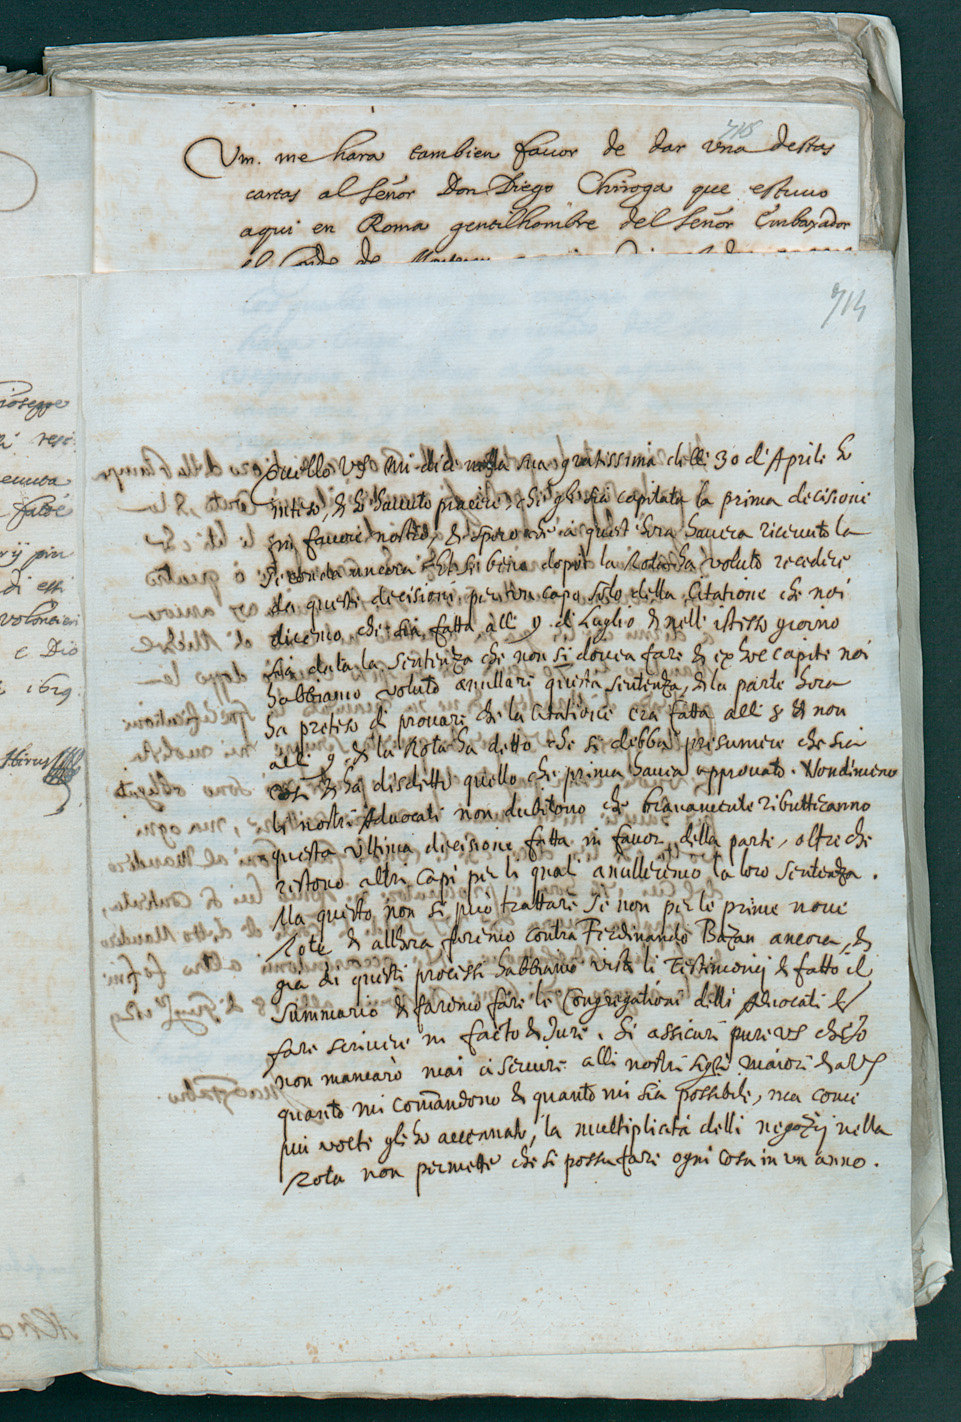 715
Vm. me hara tambien fauor de dar vna destas
cartas al señor Don Diego Chiroga que estuuo
aqui en Roma gentilhombre del señor Embaxador
el Conde de
714
Gioseppe
di essi
volontieri
e Dio
1629
Quello VS mi dice nella sua gratissima delli 30 d'Aprile ho
inteso, et ho hauuto piacere che gli sia capitata la prima decisione
in fauore nostro, et spero che a quest'hora hauera riceuuto la
seconda ancora. Et se bene dopò la Rota ha voluto recedere
da queste decisioni per vn capo solo della Citatione che noi
dicemo che sia fatta alli 9 di Luglio et nell'istesso giorno
sia data la sentenza che non si doueua fare et ex hoc capite noi
habbiamo voluto anullare questa sentenza, et la parte hora
ha preteso di prouare che la Citatione era fatta alli 8 et non
alli 9. et la Rota ha detto che si debba presumere che sia
cosi et ha disditto quello che prima haueua approuato. Nondimeno
li nostri Aduocati non dubitono che brauamente ributteranno
questa vltima decisione fatta in fauor della parte, oltre che
restono altri capi per li quali anulleremo la loro sentenza.
Ma questo non si può trattare se non per le prime noue
Rote et allhora faremo contra Ferdinando Bazan ancora, et
già di questi processi habbiamo visti li Testimonij et fatto il
Summario et faremo fare le Congregationi delli Aduocati et
fare scriuere in facto et Jure. Si assicuri pure VS ch'io
non mancarò mai a seruire alli nostri sig.ri maiori et a VS
quanto mi comandono et quanto mi sia possibile, ma come
piu volte gli ho accennato, la multiplicatà delli negotij nella
Rota non permette che si possa fare ogni cosa in vn anno.